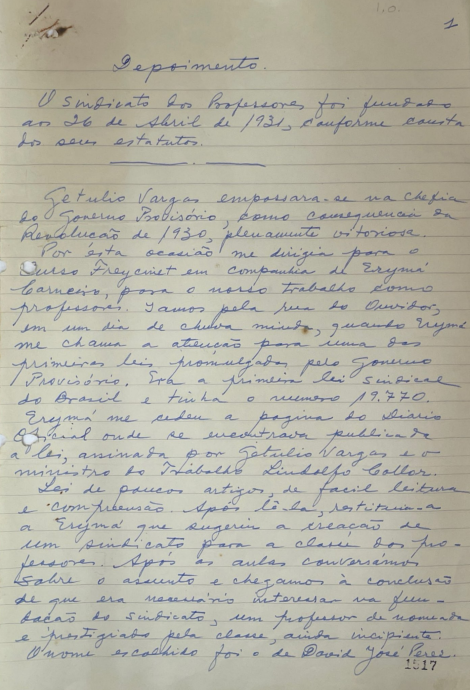 1
Depoimento.
O sindicato dos Professores foi fundado
aos 26 de Abril de 1931, conforme consta
dos seus estatutos.
Getulio Vargas empossara-se na chefia
do Governo Provisório, como consequencia da
Revolucão de 1930, plenamente vitoriosa.
Por ésta ocasião me dirigia para o
Curso Freycinet em companhia de Erymá
Carneiro, para o nosso trabalho como
professores. Iamos pela rua do Ouvidor,
em um dia de chuva miuda, quando Erymá
me chama a atenção para uma das
primeiras leis promulgadas pelo Governo
Provisório. Era a primeira lei sindical
do Brasil e tinha o numero 19.770.
Erymá me cedeu a pagina do Diario
Oficial onde se encontrava publicada
a lei, assinada por Getulio Vargas e o
ministro do Trabalho Lindolfo Collor.
Lei de poucos artigos, de facil leitura
e compreensão. Após lê-la, restitui-a
a Erymá que sugeriu a creação de
um sindicato para a classe dos pro-
fessores. Apos as aulas conversámos
sobre o assunto e chegamos à conclusão
de que era necessário interessar na fun-
dação do sindicato, um professor de nomeada
e prestigiado pela classe, ainda incipiente.
O nome escolhido foi o de David José Perez.
1517